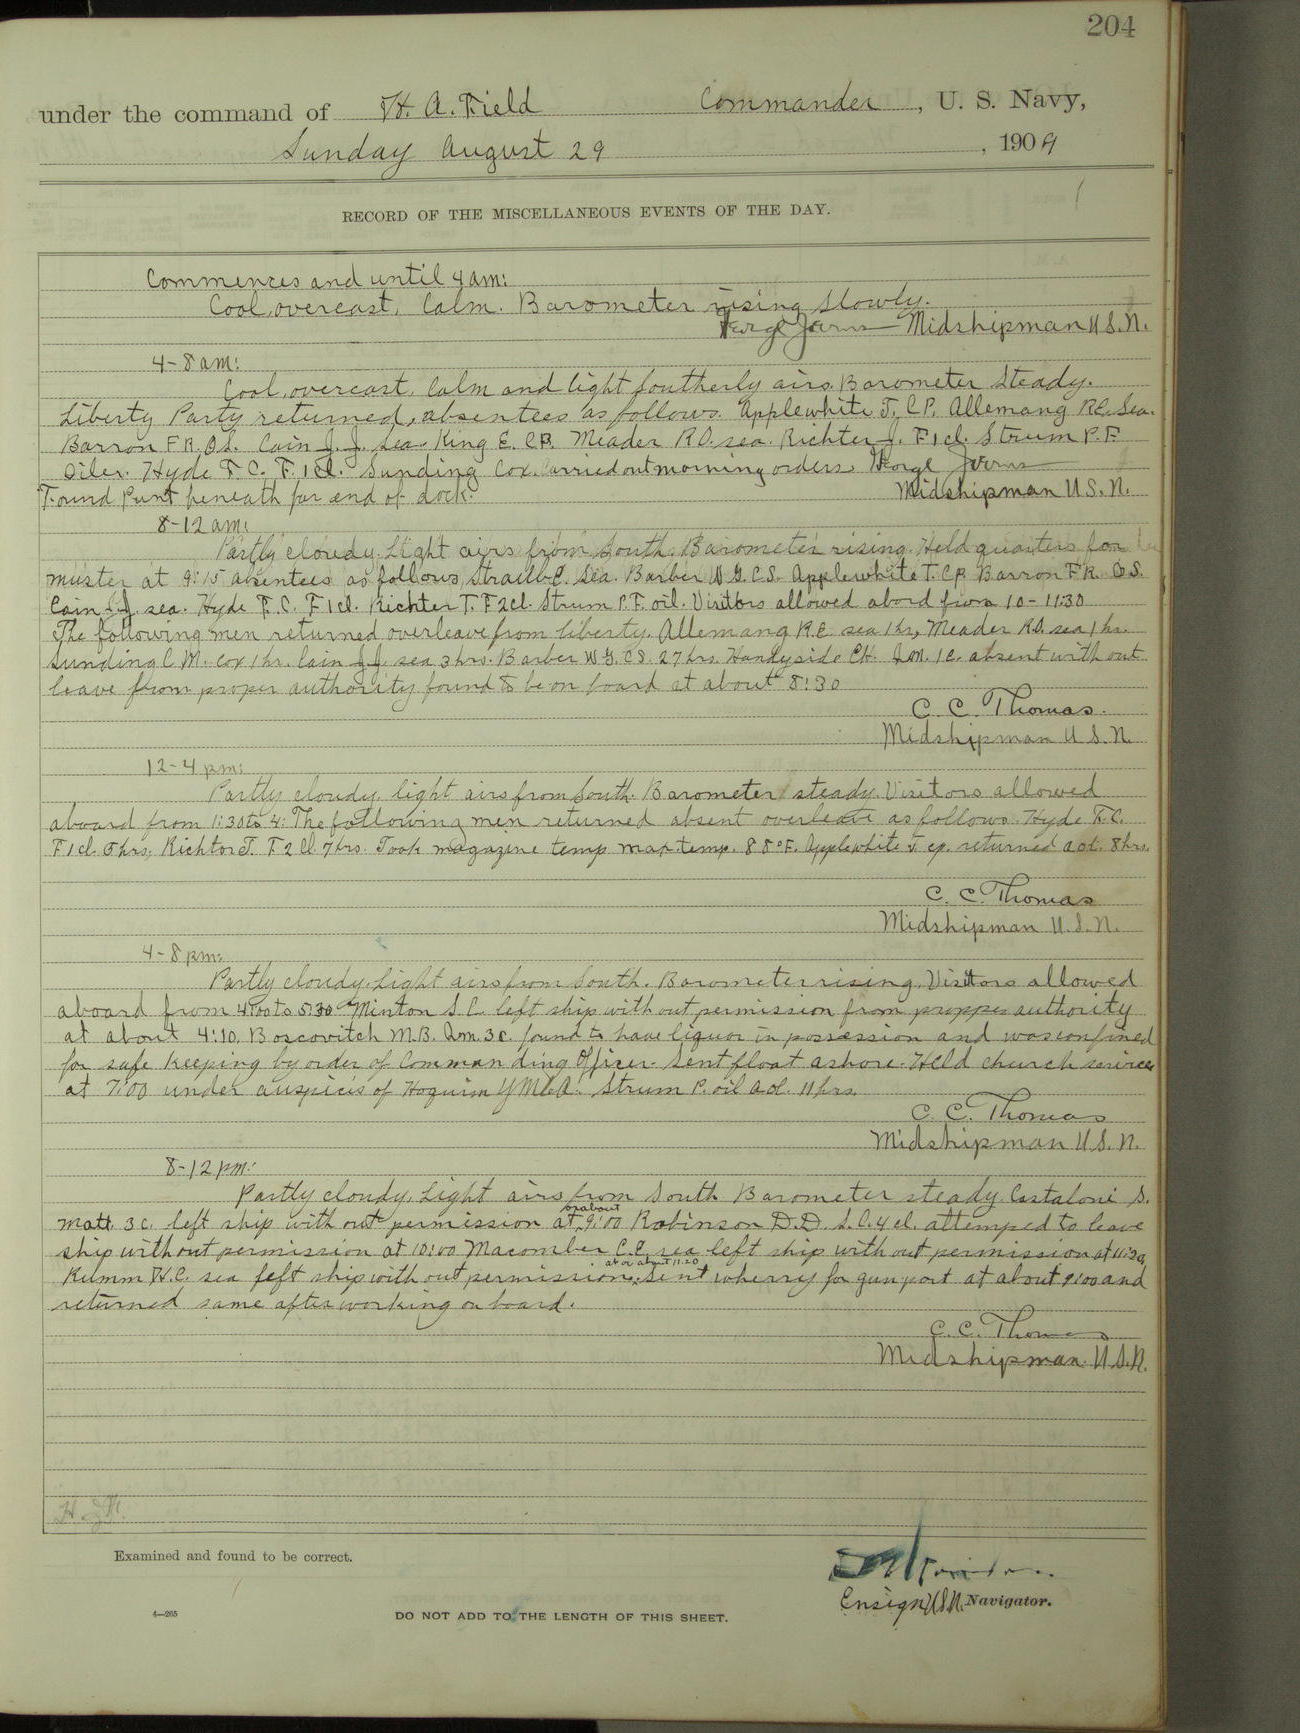 204
under the command of H. A. Field Commander, U. S. Navy,
Sunday August 29, 1909
RECORD OF THE MISCELLANEOUS EVENTS OF THE DAY.
Commences and until 4 am:
Cool, overcast, Calm. Barometer rising slowly.
Midshipman U.S.N.
4-8 am:
Cool, overcast, Calm and light Southerly airs. Barometer Steady.
Liberty Party returned, absentees as follows. Applewhite T. C.P. Allemang R.E. Sea.
Barron F.R. O.S. Cain J.J. Sea. King E. C.P. Meader R.O. sea. Richter J. F1cl. Strum P.F.
Oiler. Hyde F.C. F.1cl. Sunding Cox. Carried out morning orders. George
Found Punt beneath far end of dock. Midshipman U.S.N.
8-12 am:
Partly cloudy. Light airs from South. Barometer rising. Held quarters for
muster at 9:15 absentees as follows, C. Sea. Barber W.G. C.S. Applewhite T. C.P. Barron F.R. O.S.
Cain J.J. sea. Hyde F.C. F1cl. Richter T. F2cl. Strum P.F. oil. Visitors allowed abord from 10-11:30
The following men returned overleave from liberty. Allemang R.E. sea 1hr, Meader R.O. sea 1hr.
Sunding C.M. cox 1hr. Cain J.J. sea 3hrs. Barber W.G. CS. 27hrs. Handyside C.H. 1c. absent without
leave from proper authority found to be on board at about 8:30
C. C. Thomas.
Midshipman U.S.N.
12-4 pm:
Partly cloudy, light airs from South. Barometer steady. Visitors allowed
aboard from 1:30 to 4: The following men returned absent overleave as follows. Hyde F.C.
F1cl. 8hrs, Richter T. F2cl. 7hrs. Took magazine temp max temp. 88°F. Applewhite T. cp. returned a.o.l. 8hrs.
C. C. Thomas
Midshipman U.S.N.
4-8 pm:
Partly cloudy. Light airs from South. Barometer rising. Visitors allowed
aboard from 4:00 to 5:30 Minton S.C. left ship without permission from propper authority
at about 4:10, Boscovitch M.B. Am. 3c. found to have liquor in possession and was confined
for safe keeping by order of Commanding Officer. Sent float ashore. Held church services
at 7:00 under auspicis of Hoquim YMCA. Strum P. oil a.o.l. 11 hrs.
C. C. Thomas
Midshipman U.S.N.
8-12 pm:
Partly cloudy, Light airs from South Barometer steady. Castaloni S.
Matt. 3c. left ship without permission at or about 9:00 Robinson D.D. S.C. 4cl. attemped to leave
ship without permission at 10:00 Macomber C.C. sea left ship without permission at 11:20,
Kumm W.C. sea left ship without permission at or about 11:20. Sent wherry for gun port at about 9:00 and
returned same after working on board.
C. C. Thomas
Midshipman U.S.N.
Examined and found to be correct.
Ensign U.S.N. Navigator.
4—265
DO NOT ADD TO THE LENGTH OF THIS SHEET.